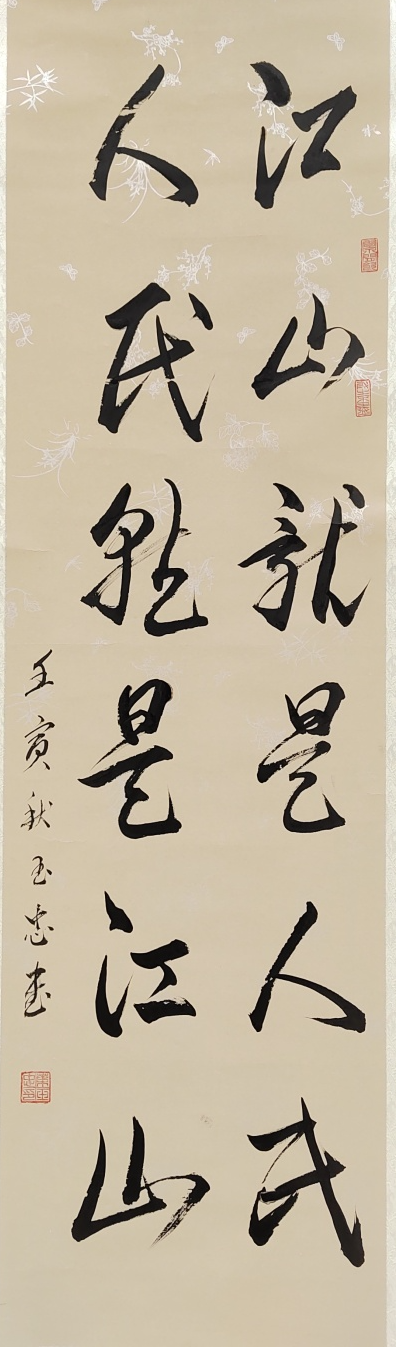 江山就是人民
人民就是江山
壬寅秋玉忠书